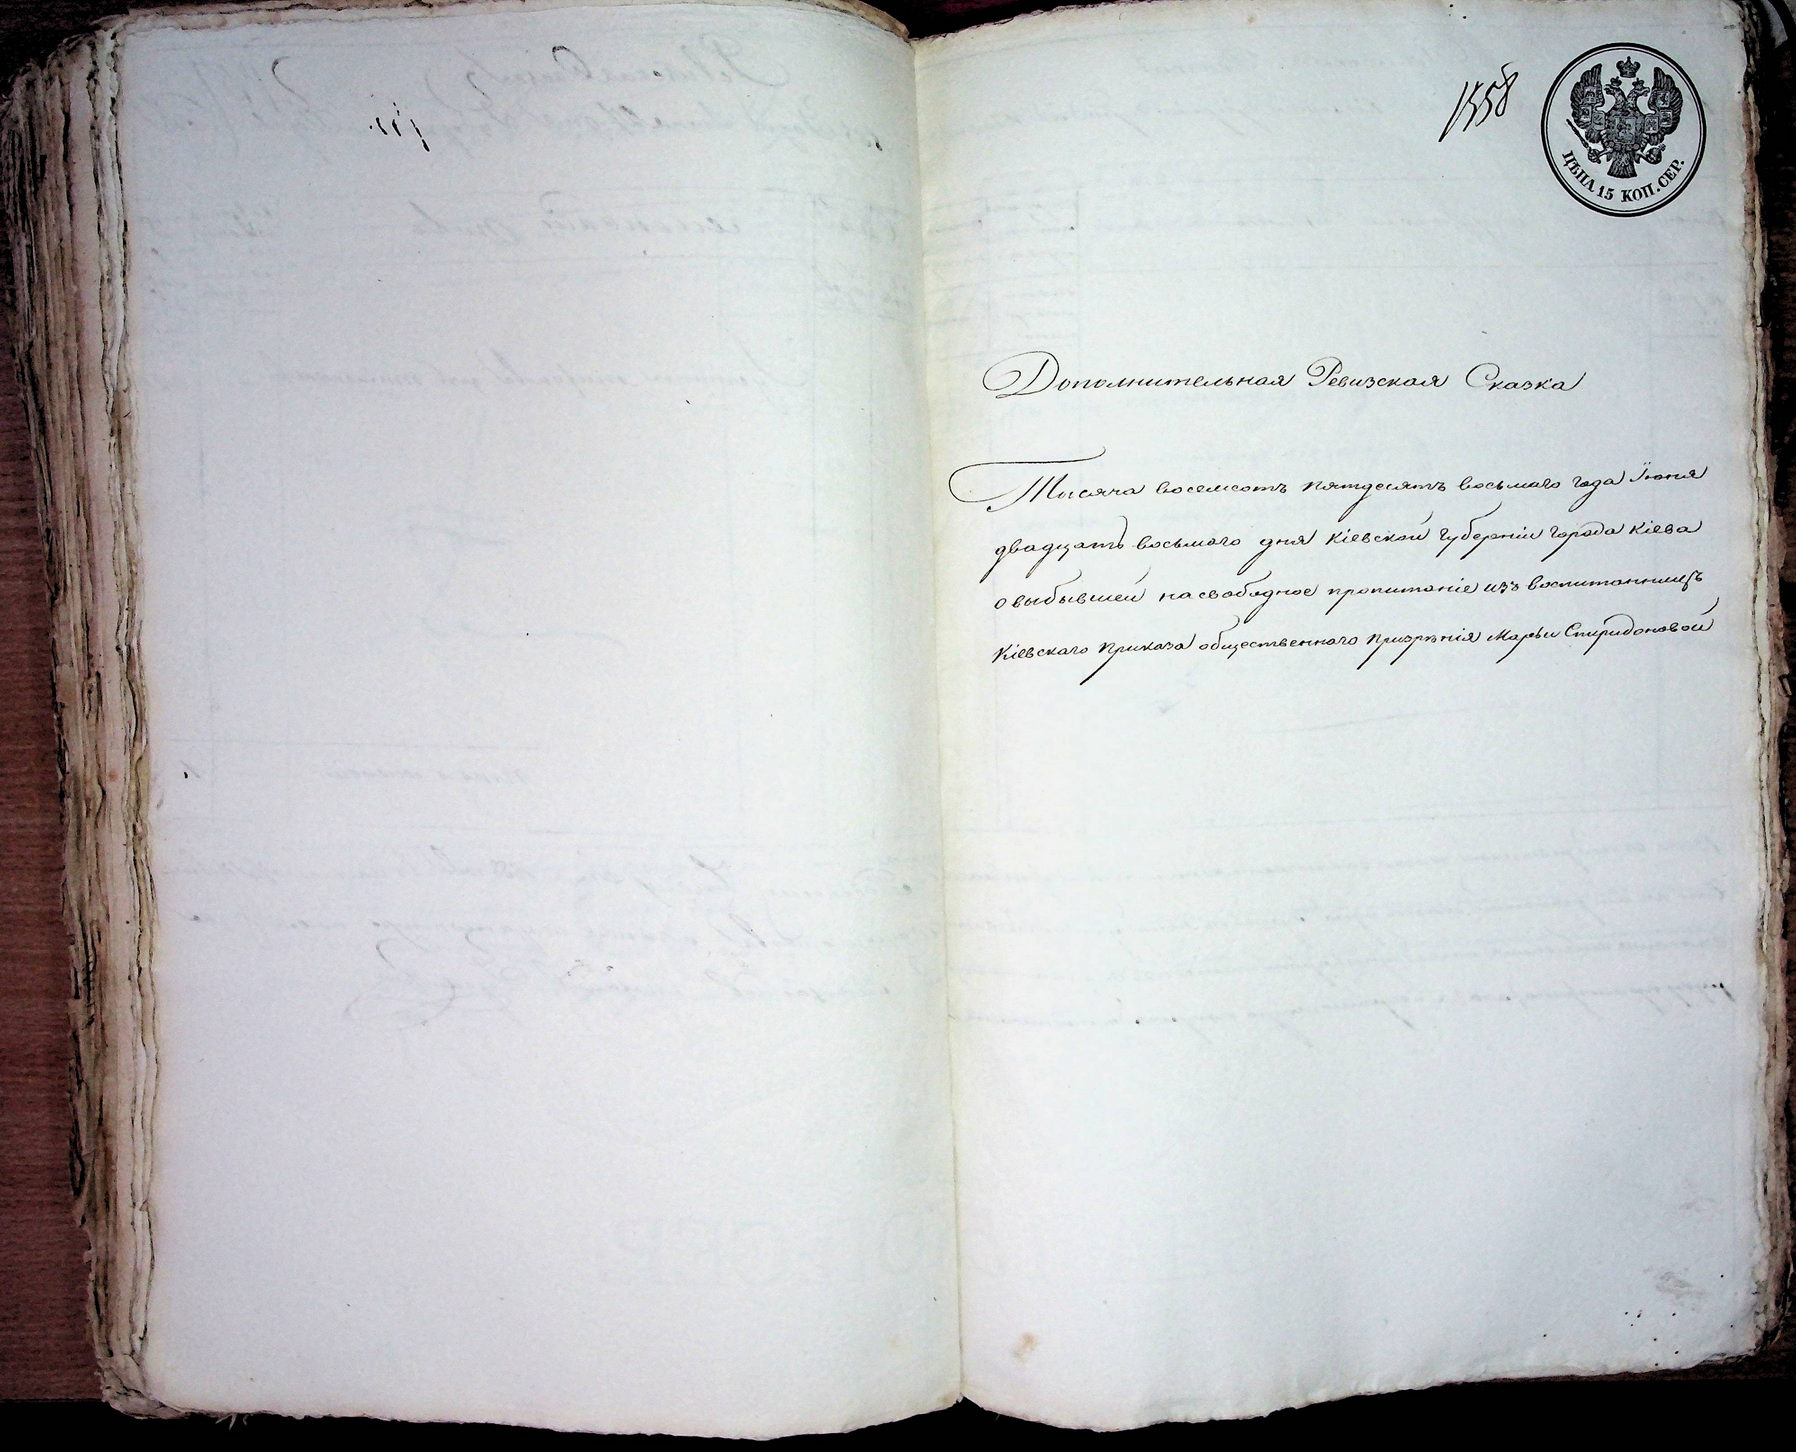 1558
ЦѢНА 15 КОП. СЕР.
Дополнительная Ревизская Сказка
Тысяча восемсотъ пятдесятъ восьмаго года Іюня
двадцать восьмаго дня Кіевской губерніи города Кіева
о выбывшей на свободное пропитаніе изъ воспитанницъ
Кіевскаго Приказа общественнаго призрѣнія Марьи Спиридоновой